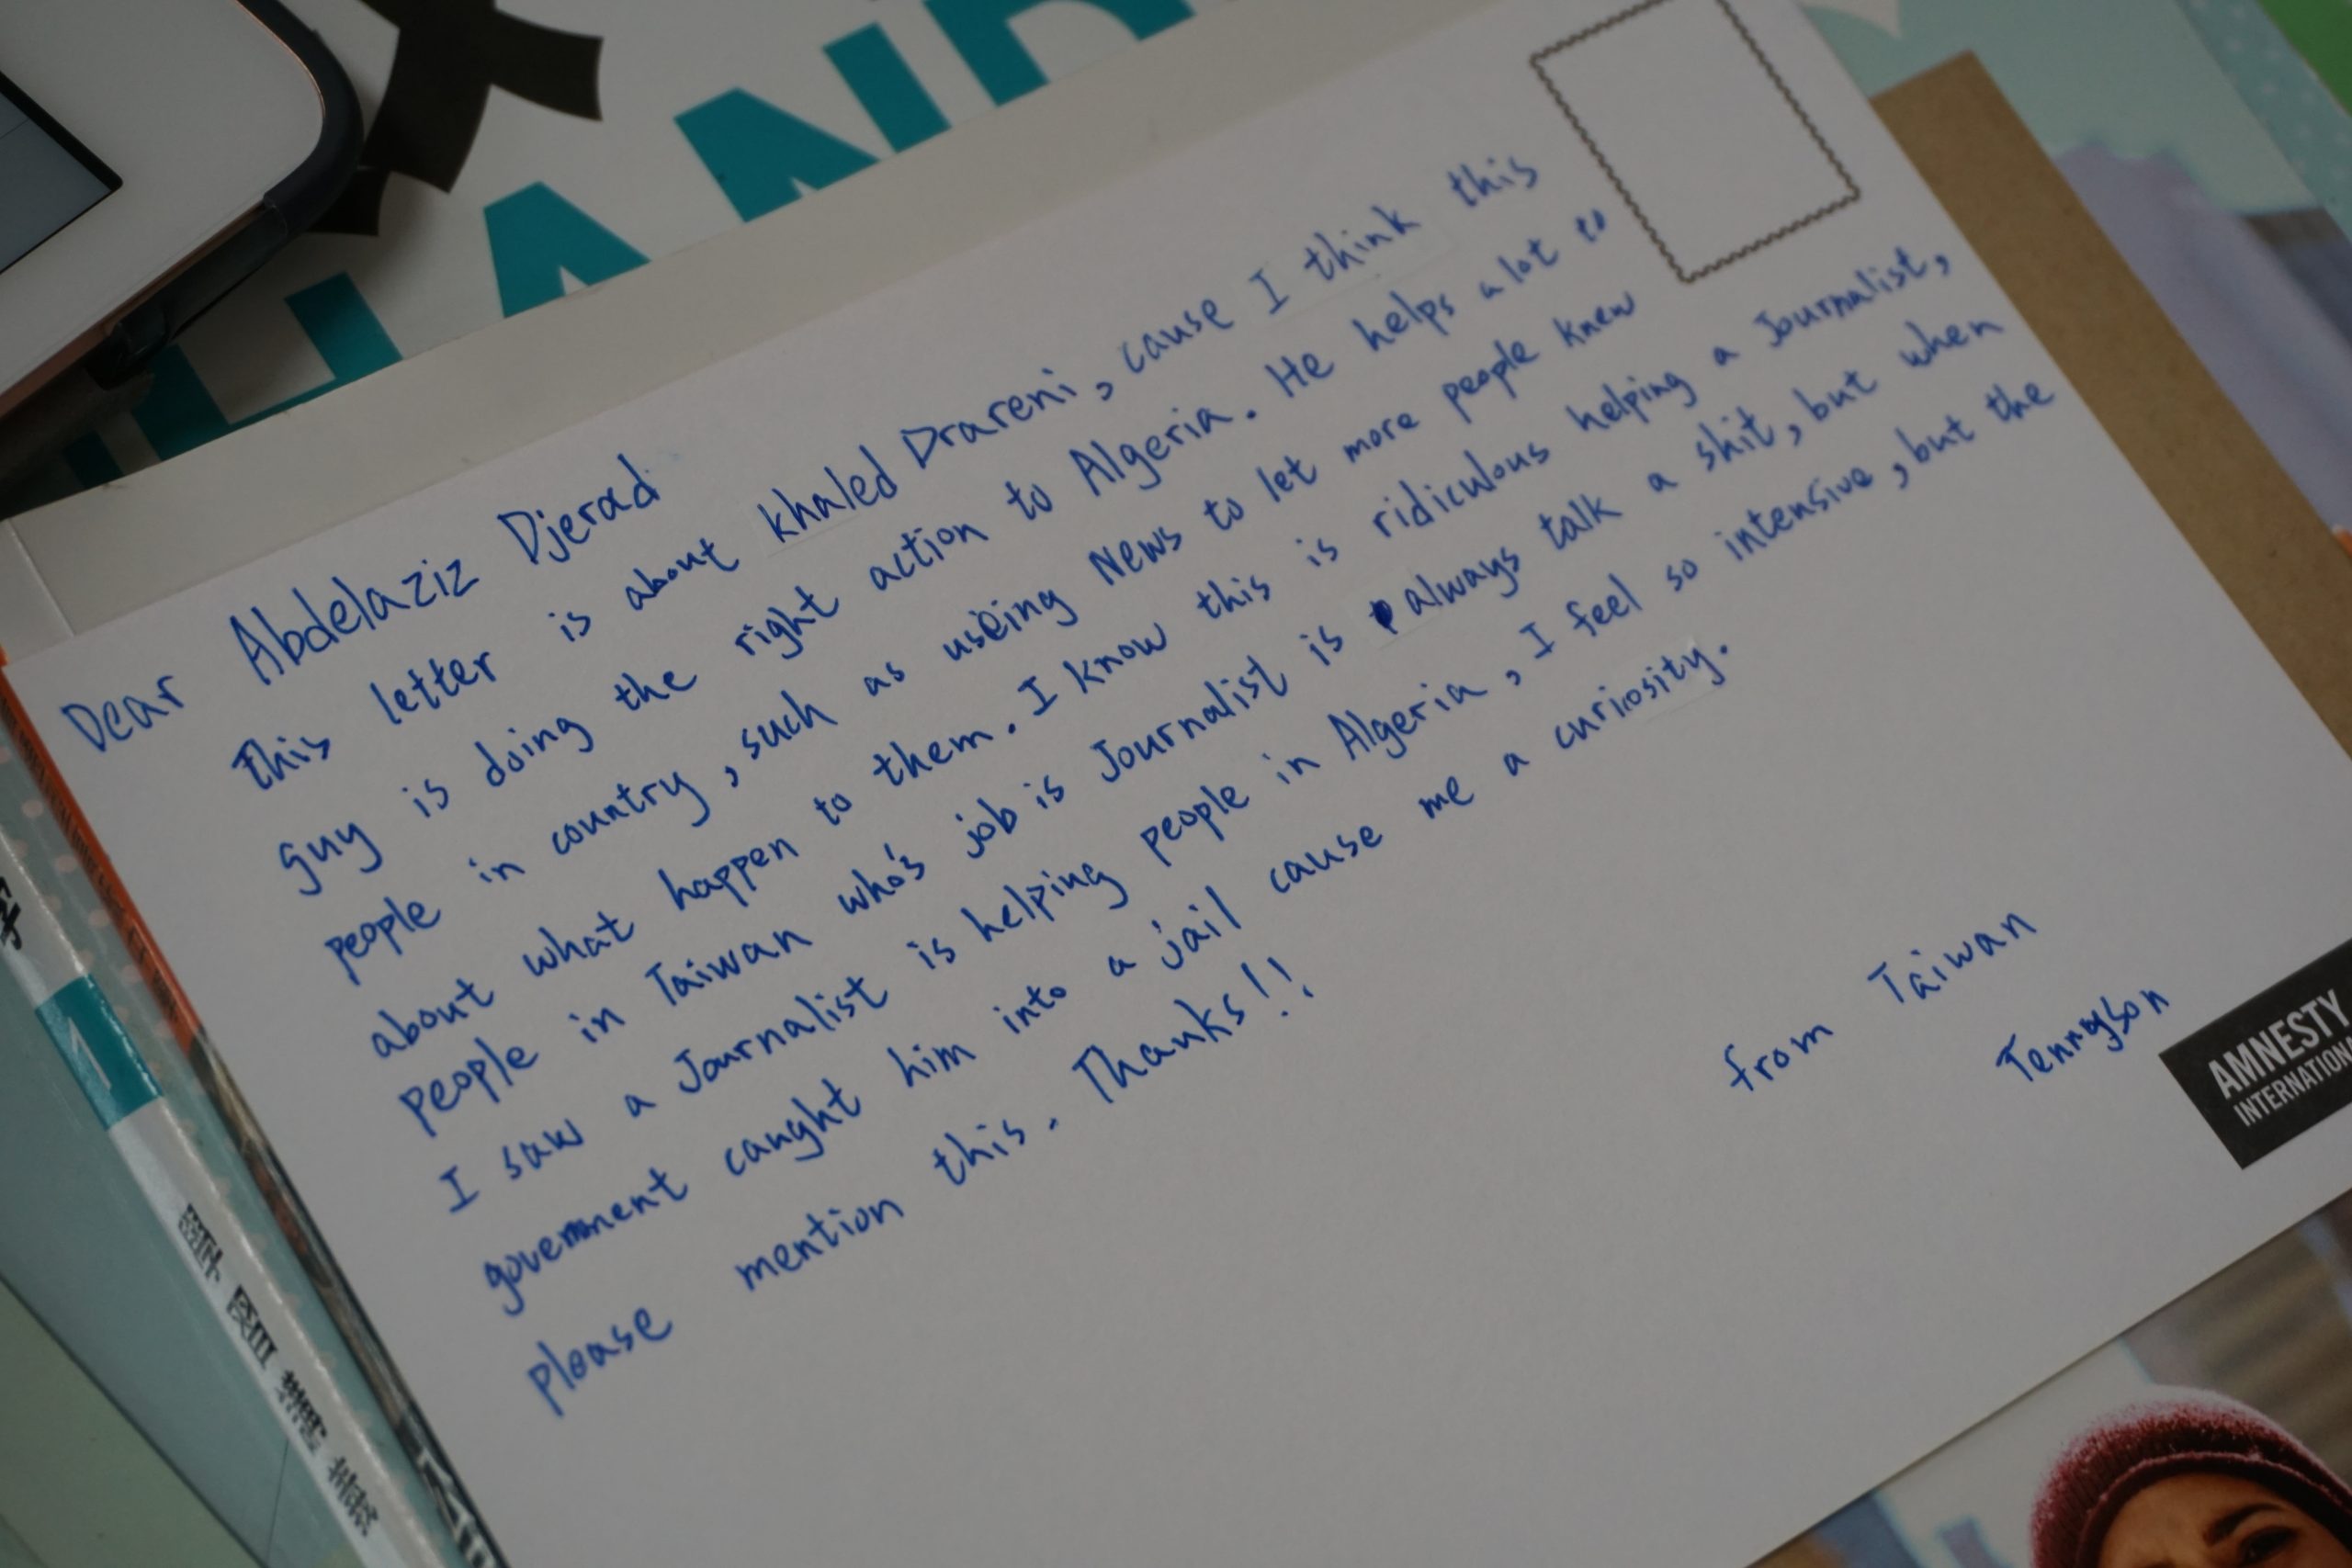 LAND
Dear Abdelaziz Djerad
This letter is about Khaled Drareni, cause I think this
guy is doing the right action to Algeria. He helps a lot to
people in country, such as useing News to let more people knew
about what happen to them. I know this is ridiculous helping a Journalist,
people in Taiwan who's job is Journalist is always talk a shit, but when
I saw a Journalist is helping people in Algeria, I feel so intensive, but the
government caught him into a jail cause me a curiosity.
please mention this. Thanks!!
from Taiwan
Tennyson
AMNESTY
INTERNATIONAL
1